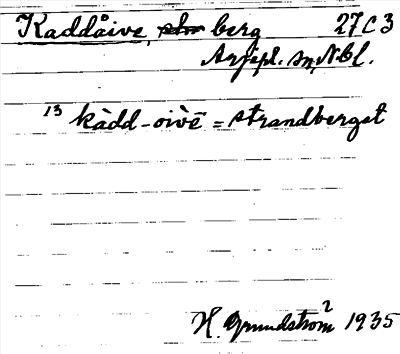 Kaddåive, berg 27C3
Arjepl. sn, Nbl.
13 kàdd-oivē = strandberget
H. Grundström 2 1935